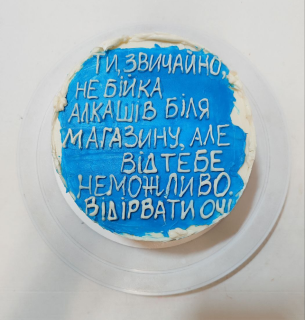 ТИ, ЗВИЧАЙНО,
НЕ БІЙКА
АЛКАШІВ БІЛЯ
МАГАЗИНУ, АЛЕ
ВІД ТЕБЕ
НЕМОЖЛИВО.
ВІДІРВАТИ ОЧІ